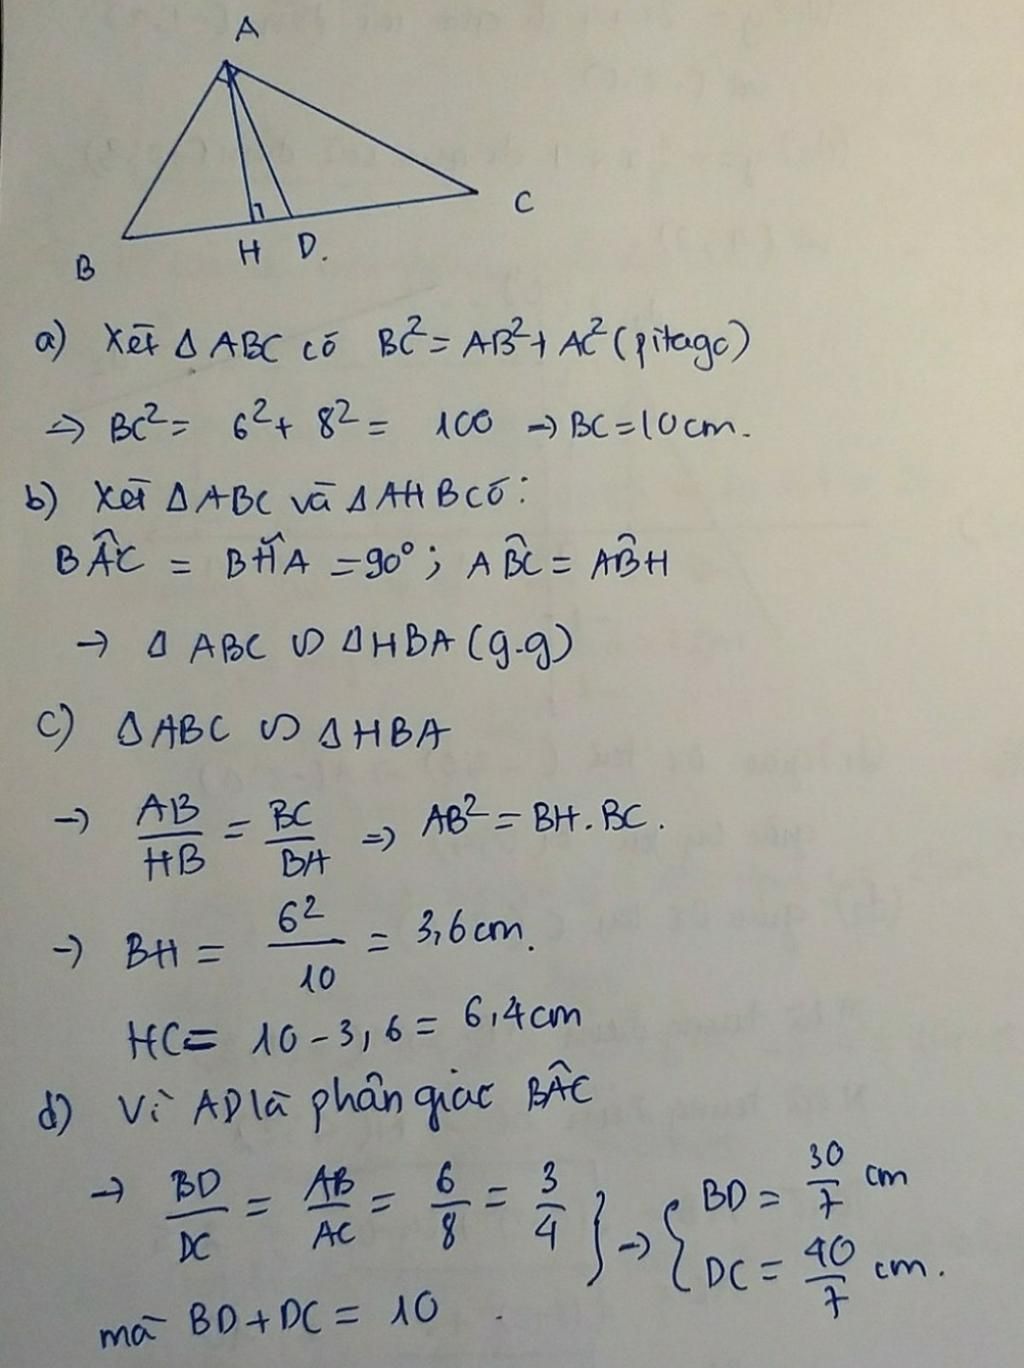 A
C
B
H D.
a) Xét Δ ABC có BC² = AB² + AC² (pitago)
→ BC² = 6² + 8² = 100 → BC = 10cm.
b) Xét Δ ABC và Δ AHB có:
BÂC = BĤA = 90°; AB̂C = AB̂H
→ Δ ABC ∽ Δ HBA (g.g)
c) Δ ABC ∽ Δ HBA
→ AB/HB = BC/BA => AB² = BH.BC.
→ BH = 6²/10 = 3,6cm.
HC = 10 - 3,6 = 6,4cm
d) Vì AD là phân giác BÂC
→ BD/DC = AB/AC = 6/8 = 3/4 } → { BD = 30/7 cm
DC = 40/7 cm.
mà BD + DC = 10